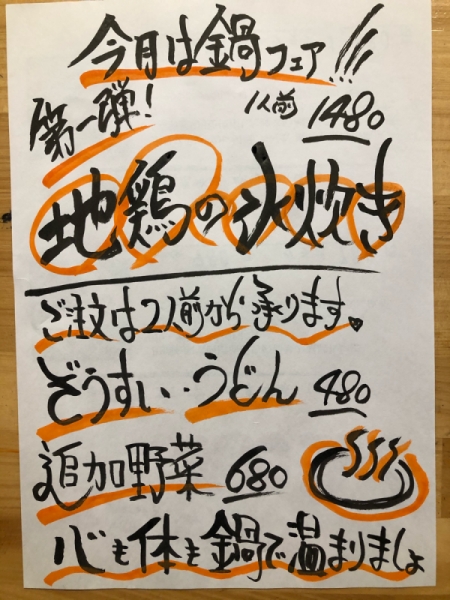 今月は鍋フェア!!!
第一弾! 1人前 1480
地鶏の水炊き
ご注文は2人前から承ります。
ぞうすい・・うどん 480
追加野菜 680
心も体も鍋で温まりましょ